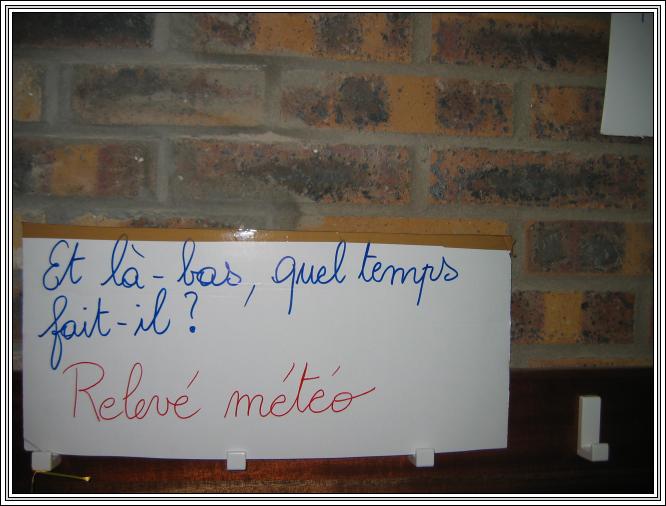 Et là-bas, quel temps
fait-il ?
Relevé météo